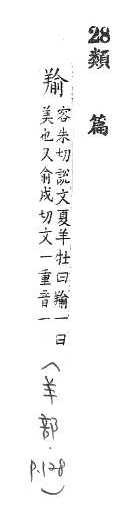 28
類篇
羭
容朱切說文夏羊牡曰羭一曰
美也又俞戍切文一重音一
(羊部.
P.128)